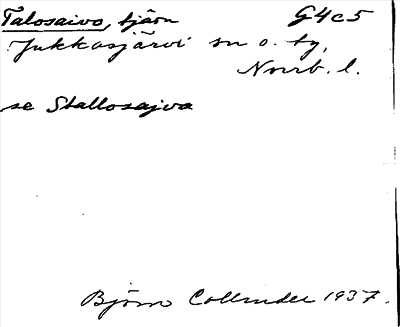 Talosaivo, tjärn G4c5
Jukkasjärvi sn o. tg,
Norrb. l.
se Stallosajva
Björn Collinder 1937.